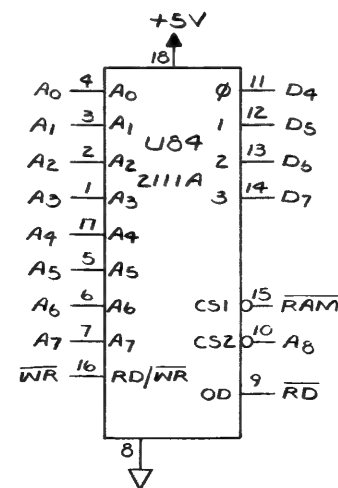 +5V
18
A0 4 A0 Ø 11 D4
A1 3 A1 1 12 D5
U84
A2 2 A2 2 13 D6
2111A
A3 1 A3 3 14 D7
A4 17 A4
A5 5 A5
A6 6 A6 CS1 15 R̅A̅M̅
A7 7 A7 CS2 10 A8
W̅R̅ 16 RD/W̅R̅
OD 9 R̅D̅
8